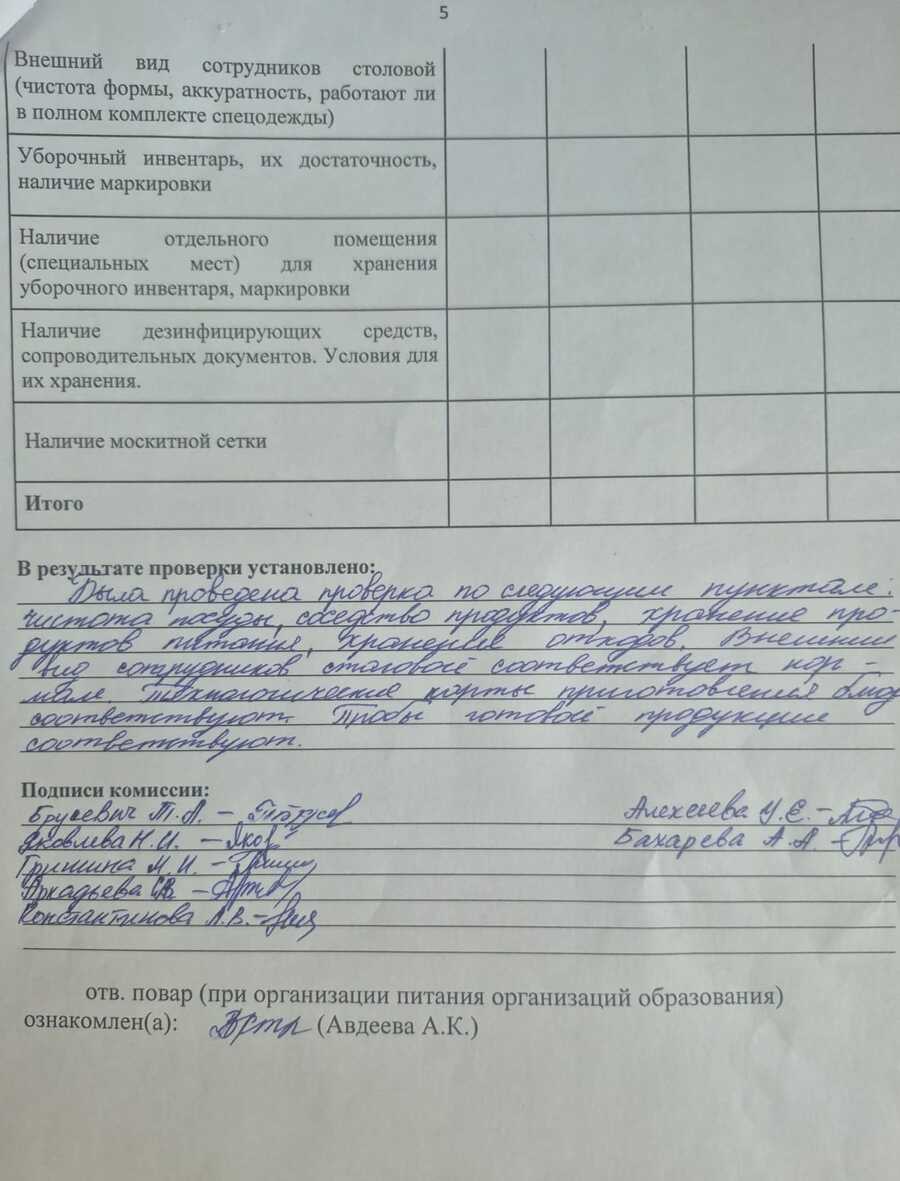 5
Внешний вид сотрудников столовой
(чистота формы, аккуратность, работают ли
в полном комплекте спецодежды)
Уборочный инвентарь, их достаточность,
наличие маркировки
Наличие отдельного помещения
(специальных мест) для хранения
уборочного инвентаря, маркировки
Наличие дезинфицирующих средств,
сопроводительных документов. Условия для
их хранения.
Наличие москитной сетки
Итого
В результате проверки установлено:
Была проведена проверка по следующим пунктам:
чистота посуды, соседство продуктов, хранение про-
дуктов питания, хранения отходов. Внешний
вид сотрудников столовой соответствует нор-
мам. Технологические карты приготовления блюд
соответствуют. Пробы готовой продукции
соответствуют.
Подписи комиссии:
Брусевич Т.А. – Алексеева У.Е. –
Яковлева Н.И. – Яков Бахарева А.А. –
Гришина М.И. –
Аркадьева –
Константинова Л.В. –
отв. повар (при организации питания организаций образования)
ознакомлен(а): (Авдеева А.К.)